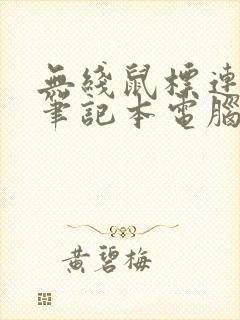 無綫鼠標連
筆記本電腦
黄碧梅